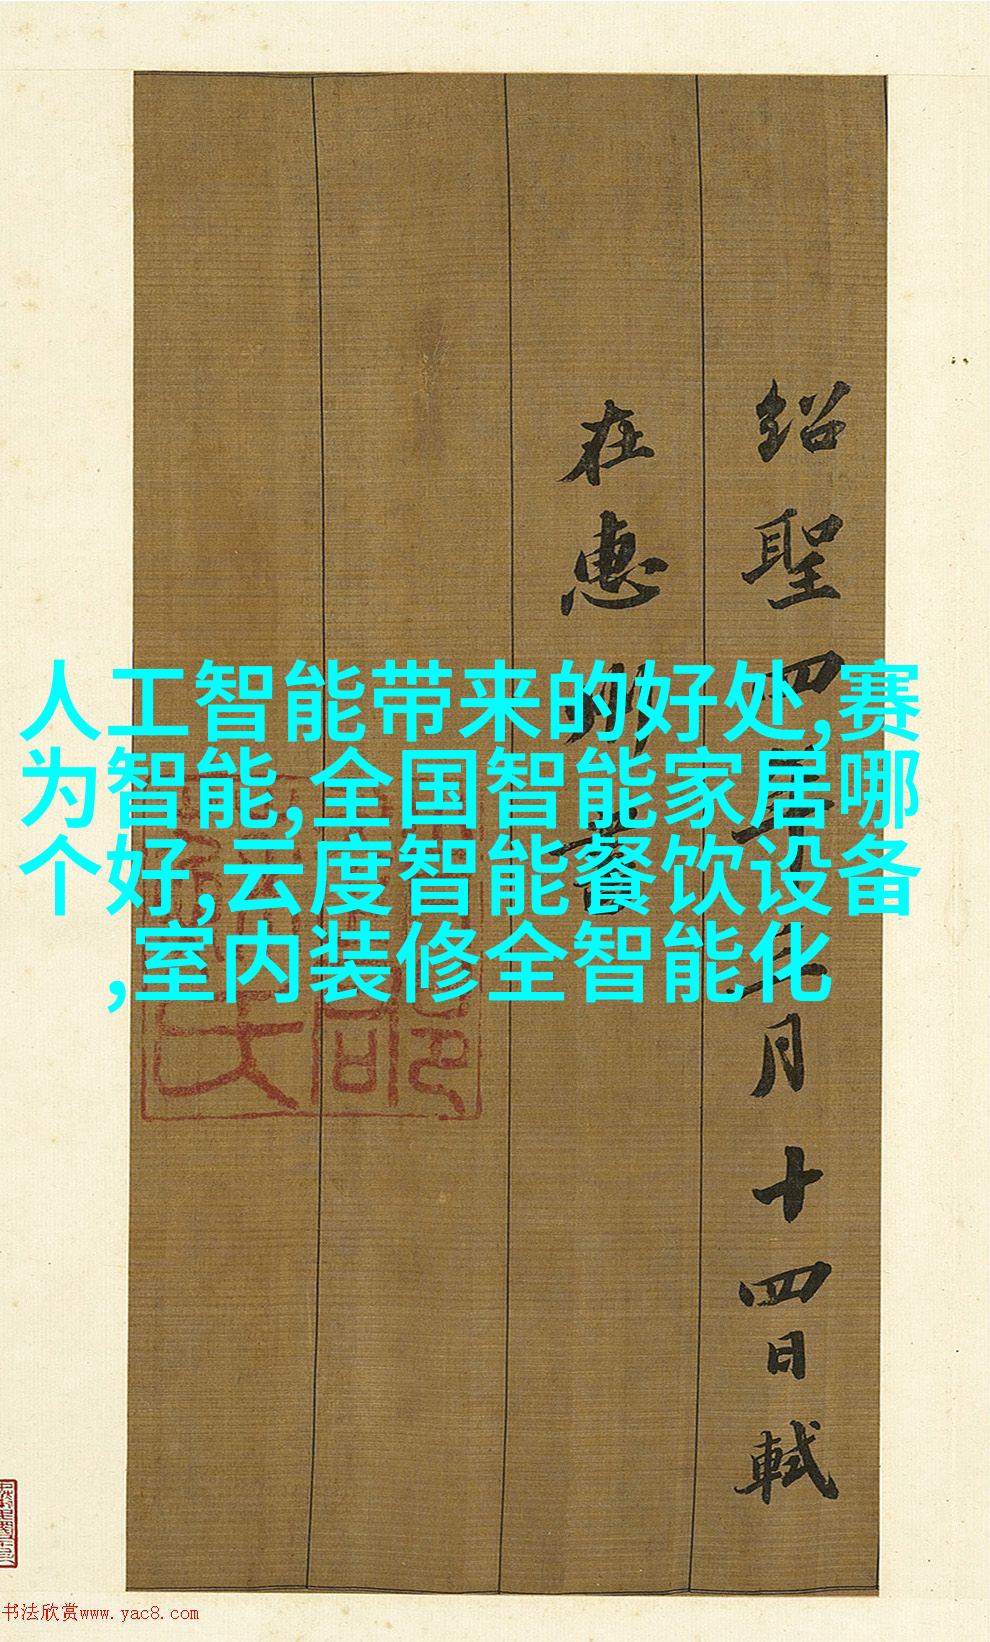 人工智能带来的好处,赛
为智能,全国智能家居哪
个好,云度智能餐饮设备
,室内装修全智能化
绍聖四年二月十四日軾
在惠州書
书法欣赏www.yac8.com